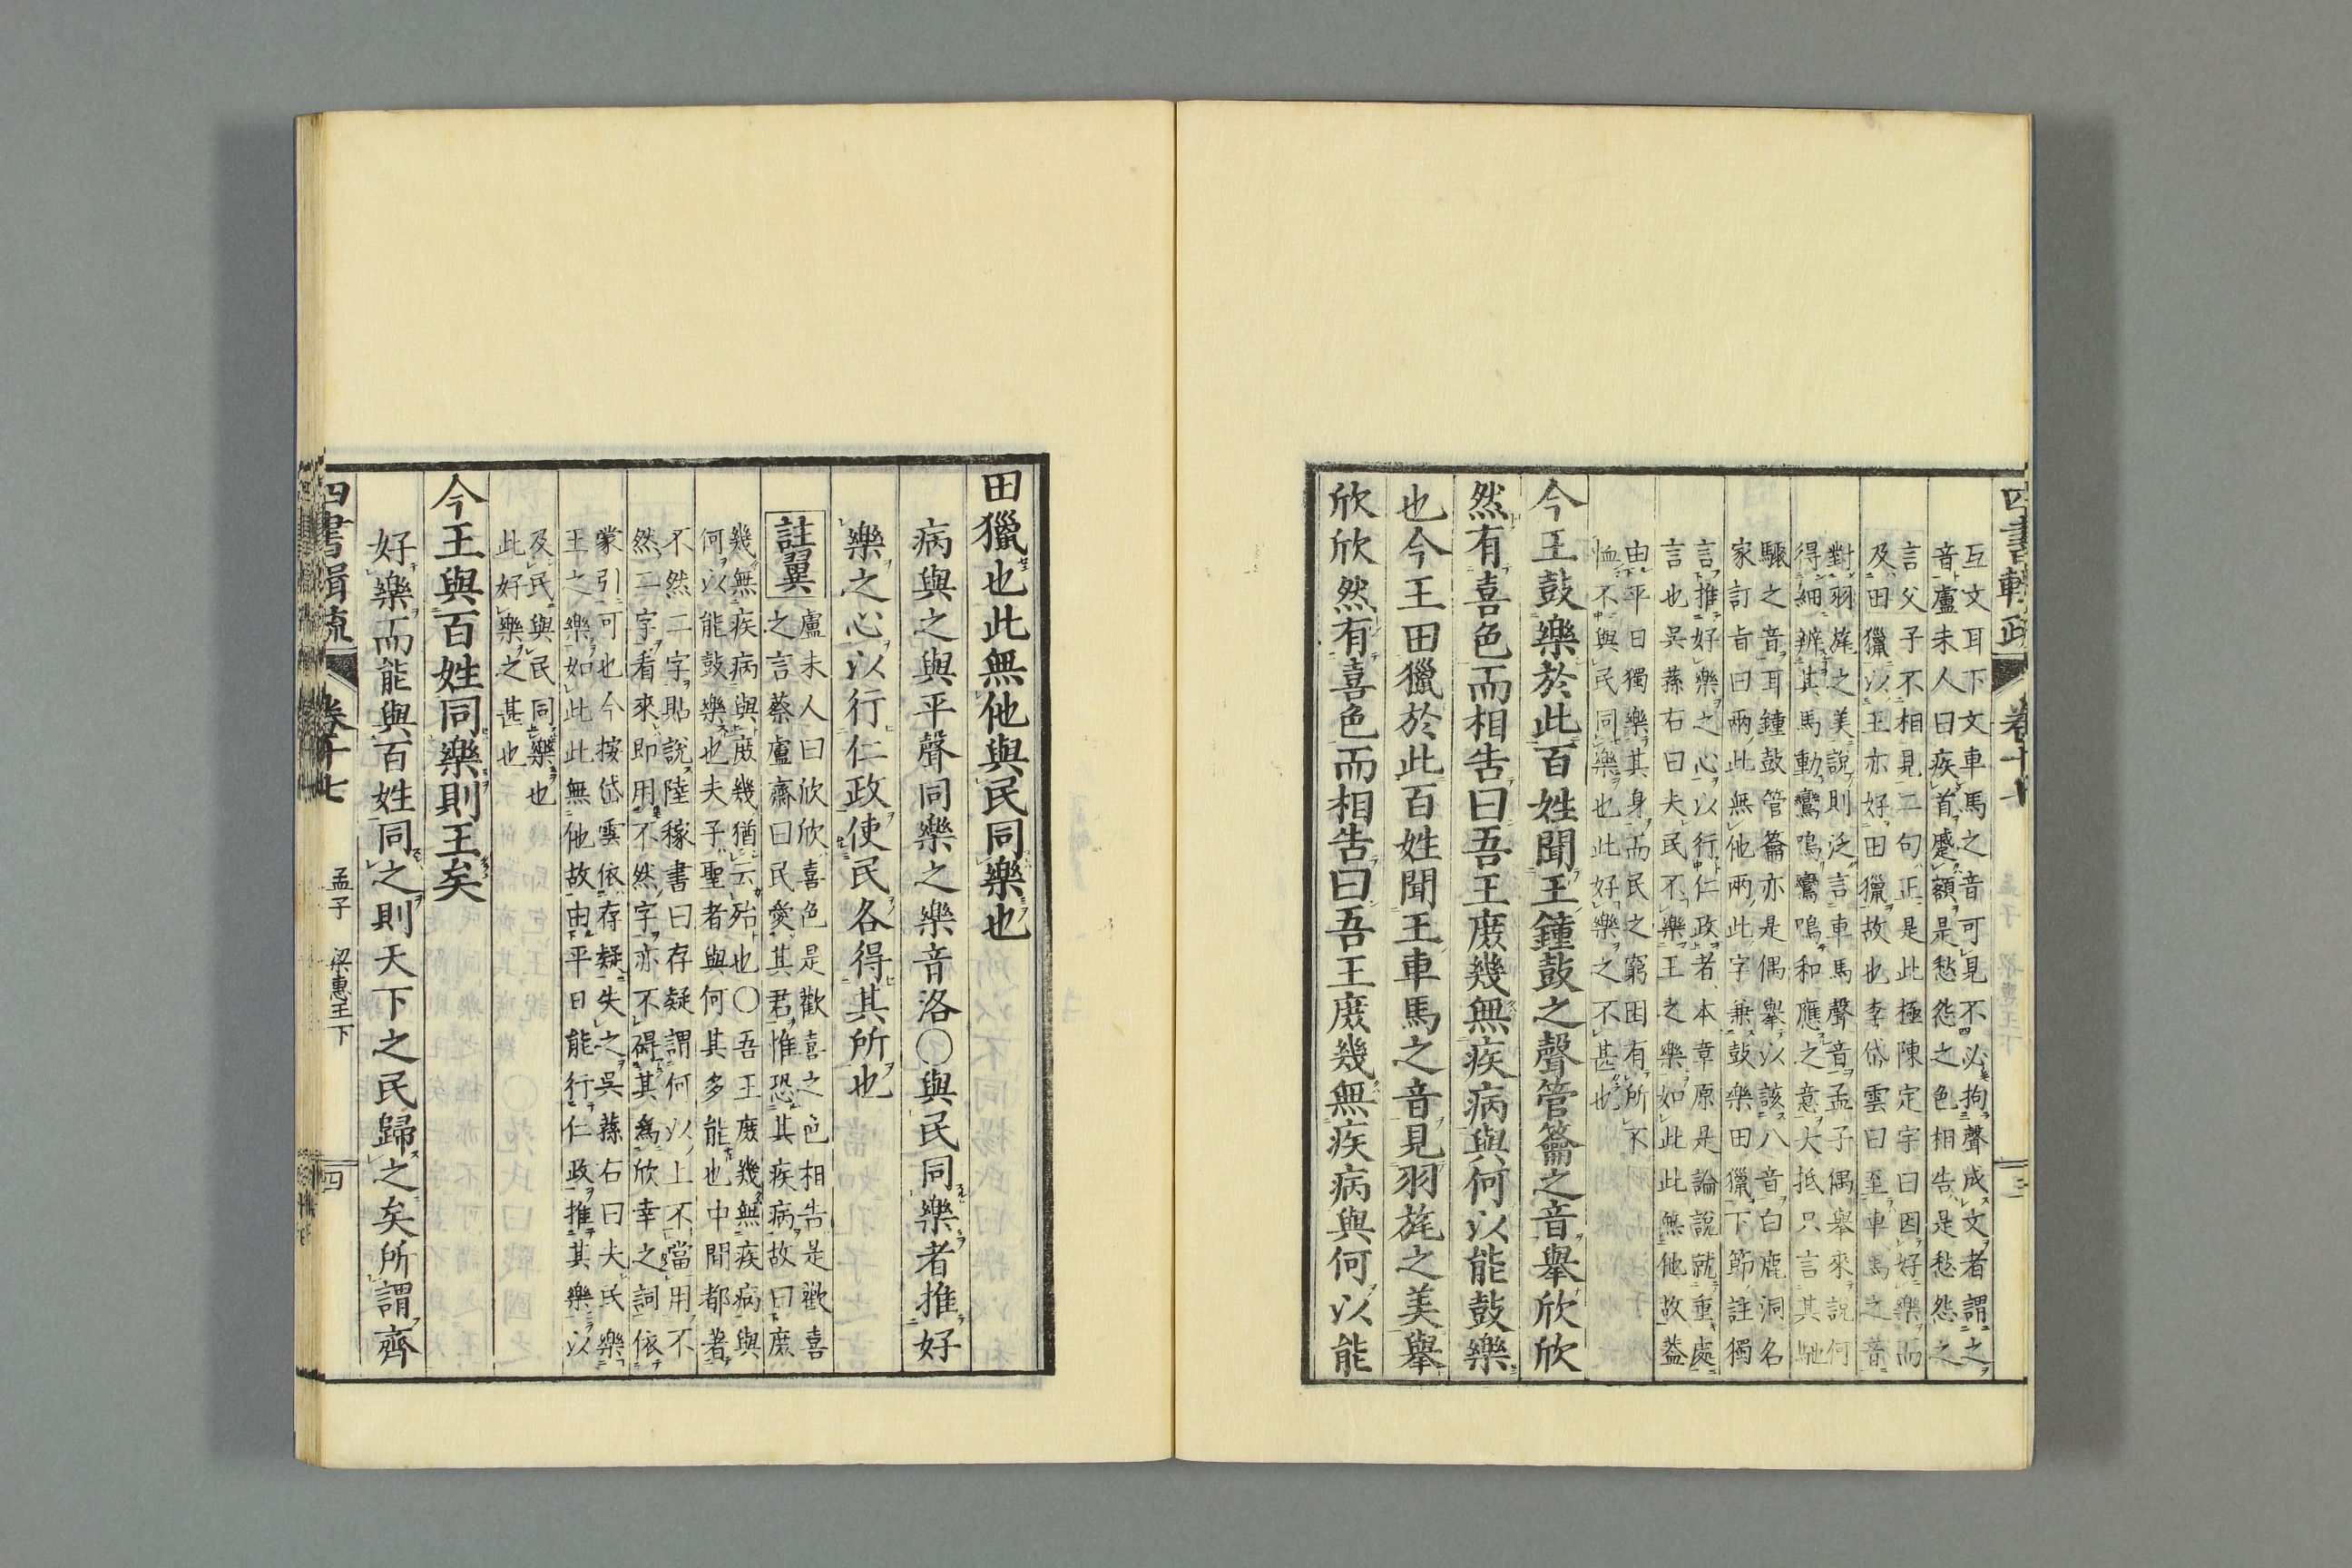 互文耳下文車馬之音可見不必拘聲成文者謂之
音盧未人曰疾首蹙額是愁怨之色相告是愁怨之
言父子不相見二句正是此極陳定宇曰因好樂而
及田獵以王亦好田獵故也李岱雲曰至車馬之音
對羽旄之美說則泛言車馬聲音孟子偶舉來說何
得細辨其馬動鸞鳴鸞鳴和應之意大抵只言其馳
驟之音耳鐘鼓管籥亦是偶舉以該八音白鹿洞名
家訂旨曰兩此無他兩此字兼鼓樂田獵下節註獨
言推好樂之心以行仁政者本章原是論說就重處
言也吳蓀右曰夫民不樂王之樂如此此無他故葢
由平日獨樂其身而民之窮困有所不
恤不與民同樂也此好樂之不甚也
今王鼓樂於此百姓聞王鐘鼓之聲管籥之音舉欣欣
然有喜色而相告曰吾王庶幾無疾病與何以能鼓樂
也今王田獵於此百姓聞王車馬之音見羽旄之美舉
欣欣然有喜色而相告曰吾王庶幾無疾病與何以能
田獵也此無他與民同樂也
病與之與平聲同樂之樂音洛○與民同樂者推好
樂之心以行仁政使民各得其所也
註翼
盧未人曰欣欣喜色是歡喜之色相告是歡喜
之言蔡盧齋曰民愛其君惟恐其疾病故曰庶
幾無疾病與庶幾猶云殆也○吾王庶幾無疾病與
何以能鼓樂也夫子聖者與何其多能也中間都著
不然二字貼說陸稼書曰存疑謂何以上不當用不
然二字看來即用不然字亦不碍其為欣幸之詞依
蒙引可也今按岱雲依存疑失之吳蓀右曰夫民樂
王之樂如此此無他故由平日能行仁政推其樂以
及民與民同樂也
此好樂之甚也
今王與百姓同樂則王矣
好樂而能與百姓同之則天下之民歸之矣所謂齊
四書輯疏
卷十七
孟子
梁惠王下
四